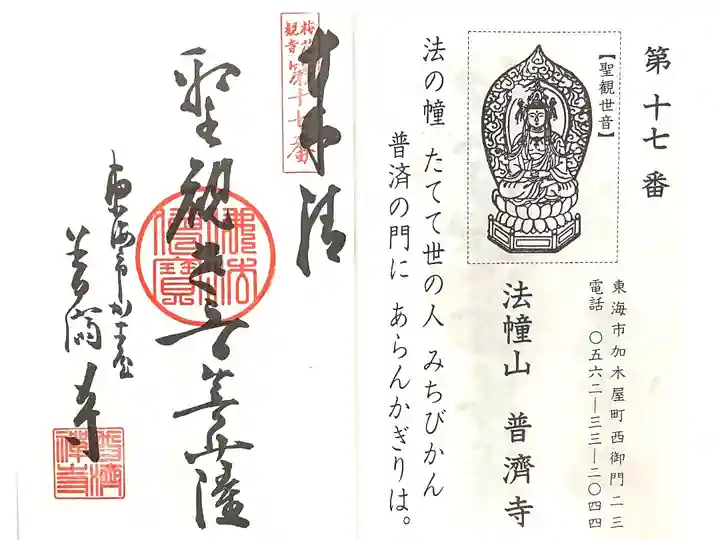 第十七番
【聖観世音】
東海市加木屋町西御門二三
電話 〇五六二―三三―二〇四四
法幢山 普濟寺
法の幢 たてて世の人 みちびかん
普済の門に あらんかぎりは。
奉拝
観音
第十七番
聖観世音菩薩
佛法僧寳
東海市加木屋
普濟寺
普濟禅寺